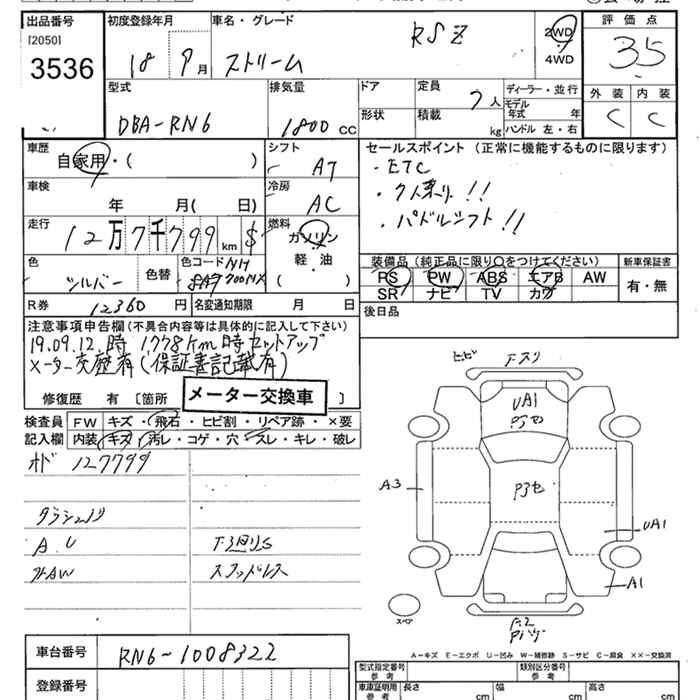 出品番号 初度登録年月 車名・グレード 評価点
[2050]
3536
18 9月 ストリーム RSZ 2WD 3.5
4WD
外装 内装
C C
型式 排気量 ドア 定員 ディーラー・並行
DBA-RN6 1800 CC 7人 モデル年式 年
形状 積載 kg ハンドル 左・右
車歴 シフト セールスポイント (正常に機能するものに限ります)
自家用・( ) AT ・ETC
車検 冷房 ・7人乗り!!
年 月( 日) AC ・パドルシフト!!
走行 燃料
12万7千799 km $ ガソリン
軽・油
( )
色 色替 色コードNH
シルバー
装備品(純正品に限り〇をつけてください) 新車保証書
PS PW ABS エアB AW 有・無
SR ナビ TV カワ
R券 12360円 名変通知期限 月 日 後日品
注意事項申告欄(不具合内容等は具体的に記入して下さい)
19.09.12.時 1778km時セットアップ
メーター交歴有(保証書記載有)
修復歴 有 〔箇所 〕
メーター交換車
検査員 FW キズ・飛石・ヒビ割・リペア跡・×要
記入欄 内装 キズ・汚レ・コゲ・穴・スレ・キレ・破レ
127799
A.U 下回りS
スタッドレス
ヒビ Fスリ
UA1
P3セ
A3
P3セ
UA1
A1
スペア
A-キズ E-エクボ U-凹 W-補修跡 S-サビ C-腐食 ××-交換済
車台番号 RN6-1008322
登録番号
型式指定番号 類別区分番号
参考 参考
車庫証明用 長さ 幅 高さ
参考 cm cm cm